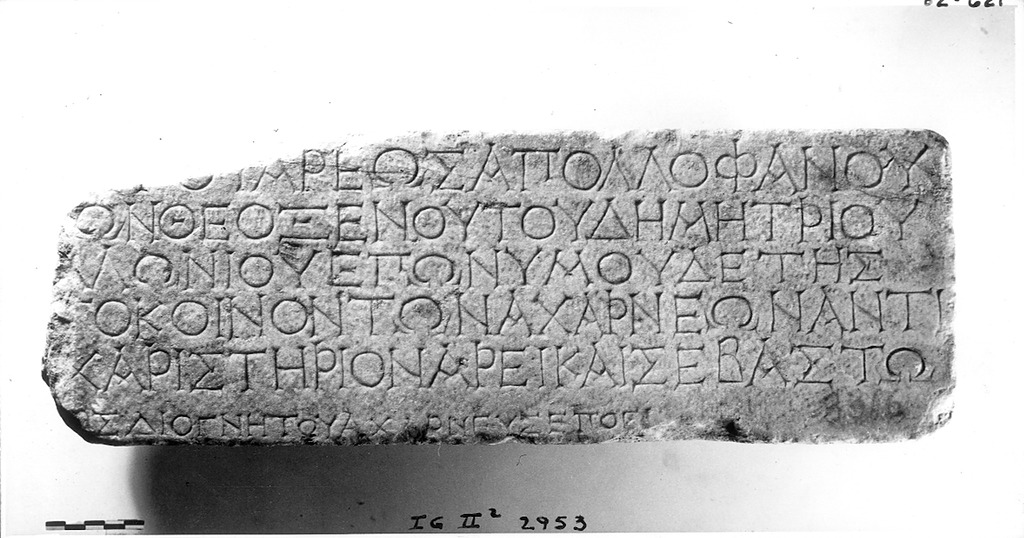 62-621
ΑΡΕΩΣΑΠΟΛΛΟΦΑΝΟΥ
ΩΝΘΕΟΞΕΝΟΥΤΟΥΔΗΜΗΤΡΙΟΥ
ΛΩΝΙΟΥΕΠΩΝΥΜΟΥΔΕΤΗΣ
ΤΟΚΟΙΝΟΝΤΩΝΑΧΑΡΝΕΩΝΑΝΤΙ
ΧΑΡΙΣΤΗΡΙΟΝΑΡΕΙΚΑΙΣΕΒΑΣΤΩ
ΣΔΙΟΓΝΗΤΟΥΑΧΑΡΝΕΥΣΕΠΟΕΙ
IG II² 2953